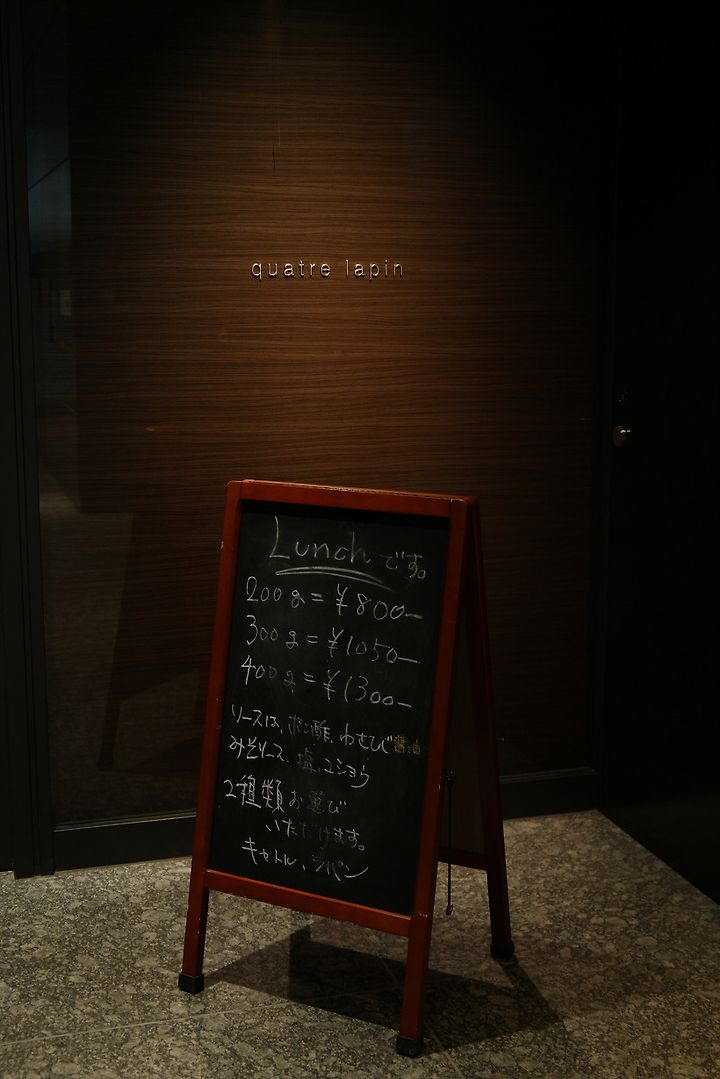 quatre lapin
Lunchです。
200g=¥800-
300g=¥1050-
400g=¥1300-
ソースは、ポン酢、わさび醤油
みそソース、塩、コショウ
2種類お選び
いただけます。
キャトル、ラパン